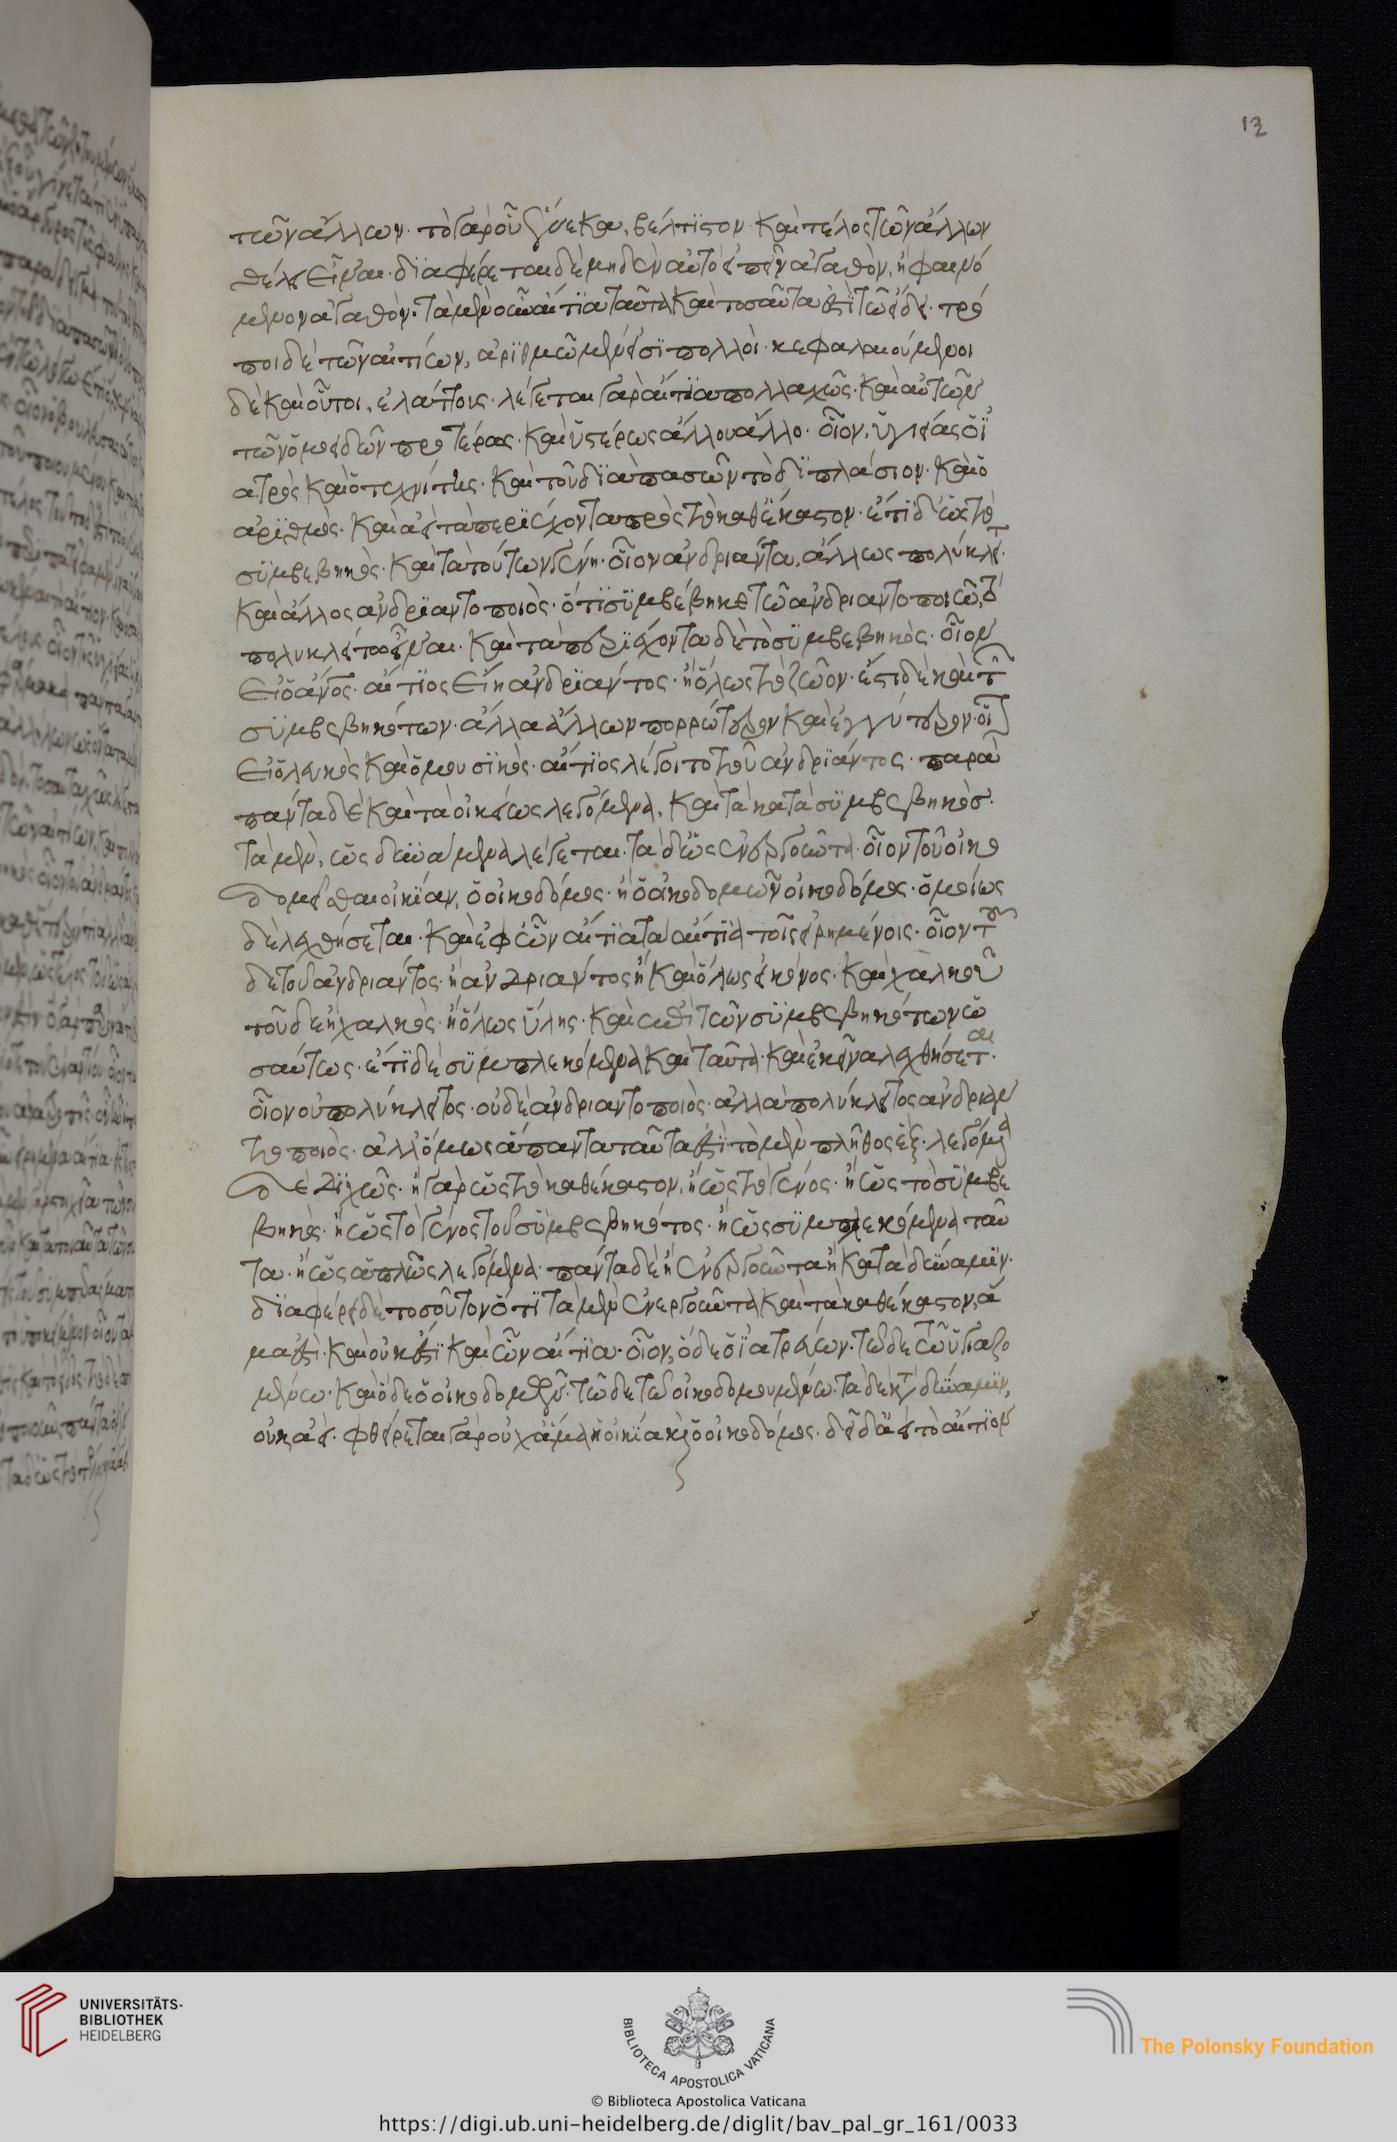 12
τῶν ἄλλων· τὸ γὰρ οὗ ἕνεκα, βέλτιστον καὶ τέλος τῶν ἄλλων
θέλει εἶναι· διαφερέτω δὲ μηδὲν αὐτὸ εἰπεῖν ἀγαθὸν, ἢ φαινό
μενον ἀγαθόν· τὰ μὲν οὖν αἴτια ταῦτα καὶ τοσαῦτα ἐστὶ τῶ εἴδει· τρό
ποι δὲ τῶν αἰτίων, ἀριθμῶ μέν εἰσι πολλοὶ· κεφαλαιούμενοι
δὲ καὶ οὗτοι, ἐλάττους· λέγεται γὰρ αἴτια πολλαχῶς· καὶ αὐτῶν
τῶν ὁμοειδῶν προτέρως καὶ ὑστέρως ἄλλου ἄλλο· οἷον, ὑγιείας ὁ ἰ
ατρὸς καὶ ὁ τεχνίτης· καὶ τοῦ διαπασῶν τὸ διπλάσιον· καὶ ὁ
ἀριθμὸς· καὶ ἀεὶ τὰ περιέχοντα πρὸς τὸ καθέκαστον· ἔτι δ' ὡς τὸ
συμβεβηκὸς· καὶ τὰ τούτων γένη· οἷον ἀνδριάντα, ἄλλως πολύκλειτ
καὶ ἄλλος ἀνδριαντοποιὸς· ὅτι συμβέβηκε τῶ ἀνδριαντοποιῶ,
πολυκλείτω εἶναι· καὶ τὰ περιέχοντα δὲ τὸ συμβεβηκὸς· οἷον
εἰ ὁ ἄνος· αἴτιος εἴη ἀνδριάντος· ἢ ὅλως τὸ ζῶον· ἔστι δὲ καὶ τ
συμβεβηκότων· ἄλλα ἄλλων πορρώτερον καὶ ἐγγύτερον· οἷ
εἰ ὁ λευκὸς καὶ ὁ μουσικὸς· αἴτιος λέγοιτο τοῦ ἀνδριάντος· παρὰ
πάντα δὲ καὶ τὰ οἰκείως λεγόμενα, καὶ τὰ κατὰ συμβεβηκὸσ·
τὰ μὲν, ὡς δυνάμενα λέγεται· τὰ δ' ὡς ἐνεργοῦντα· οἷον τοῦ οἰκο
δομεῖσθαι οἰκίαν, ὁ οἰκοδόμος· ἢ ὁ οἰκοδομῶν οἰκοδόμος· ὁμοίως
δὲ λεχθήσεται· καὶ ἐφ ὧν αἴτια τὰ αἴτια τοῖς εἰρημένοις· οἷον τ
δε τοῦ ἀνδριάντος· ἢ ἀνδριάντος ἢ καὶ ὅλως εἰκόνος· καὶ χαλκοῦ
τοῦ δε ἢ χαλκὸς· ἢ ὅλως ὕλης· καὶ ἐπὶ τῶν συμβεβηκότων ὡ
σαύτως· ἔτι δὲ συμπλεκόμενα καὶ ταῦτα· καὶ ἐκεῖνα λεχθήσεται·
οἷον οὐ πολύκλειτος· οὐδὲ ἀνδριαντοποιὸς· ἀλλὰ πολύκλειτος ἀνδριαν
τοποιὸς· ἀλλ' ὅμως ἅπαντα ταῦτα ἐστὶ τὸ μὲν πλῆθος ἓξ· λεγόμενα
δὲ διχῶς· ἢ γὰρ ὡς τὸ καθέκαστον, ἢ ὡς τὸ γένος· ἢ ὡς τὸ συμβε
βηκὸς· ἢ ὡς τὸ γένος τοῦ συμβεβηκότος· ἢ ὡς συμπλεκόμενα ταῦ
τα· ἢ ὡς ἁπλῶς λεγόμενα· πάντα δὲ ἢ ἐνεργοῦντα ἢ κατὰ δύναμιν·
διαφέρει δὲ τοσοῦτον ὅτι τὰ μὲν ἐνεργοῦντα καὶ τὰ καθέκαστον, ἅ
μα ἐστὶ· καὶ οὐκ ἔστι καὶ ὧν αἴτια· οἷον, ὅδε ὁ ἰατρεύων· τῶδε τῶ ὑγιαζο
μένω· καὶ ὅδε ὁ οἰκοδομῶν· τῶδε τῶ οἰκοδομουμένω· τὰ δὲ κατὰ δύναμιν,
οὐκ ἀεὶ· φθείρεται γὰρ οὐχ ἅμα ἡ οἰκία καὶ ὁ οἰκοδόμος· δεῖ δὲ ἀεὶ τὸ αἴτιον
UNIVERSITÄTS-
BIBLIOTHEK
HEIDELBERG
BIBLIOTECA APOSTOLICA VATICANA
The Polonsky Foundation
© Biblioteca Apostolica Vaticana
https://digi.ub.uni-heidelberg.de/diglit/bav_pal_gr_161/0033